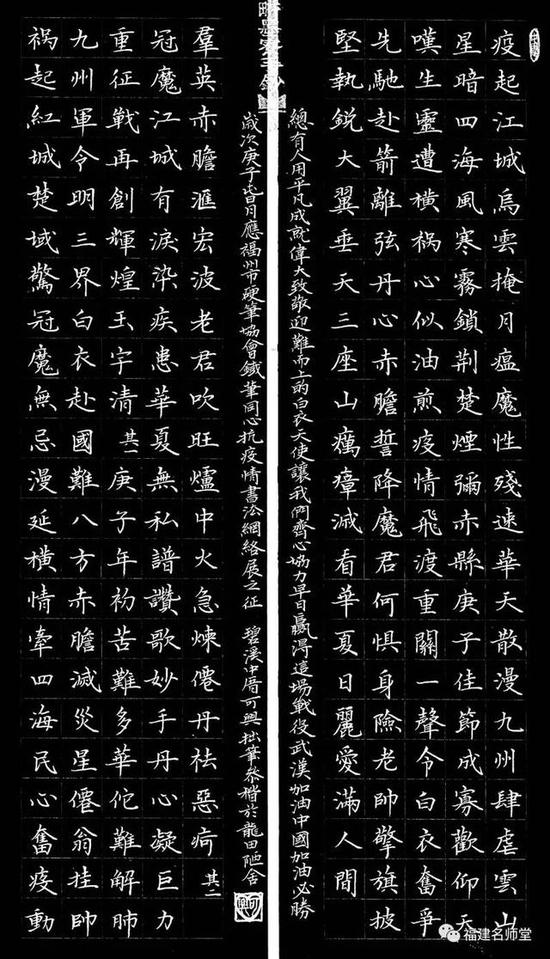 疫起江城烏雲掩月瘟魔性殘速華天散漫九州肆虐雲山
星暗四海風寒霧鎖荆楚煙彌赤縣庚子佳節成寡歡仰天
嘆生靈遭橫禍心似油煎疫情飛渡重關一聲令白衣奮爭
先馳赴箭離弦丹心赤膽誓降魔君何惧身險老帥擎旗披
堅執鋭大翼垂天三座山癘瘴滅看華夏日麗愛滿人間
總有人用平凡成就偉大致敬迎難而上的白衣天使讓我們齊心協力早日贏得這場戰役武漢加油中國加油必勝
禍起紅城楚域驚冠魔無忌漫延橫情牽四海民心奮疫動
九州軍令明三界白衣赴國難八方赤膽滅災星僊翁挂帥
重征戰再創輝煌玉宇清其一庚子年初苦難多華佗難解肺
冠魔江城有淚染疾患華夏無私譜讚歌妙手丹心凝巨力
羣英赤膽滙宏波老君吹旺爐中火急煉僊丹祛惡疴其二
歲次庚子杏月應福州市硬筆協會鐵筆同心抗疫情書法網絡展之征 碧溪中厝可興拙筆恭楷於龍田陋舍
福建名师堂